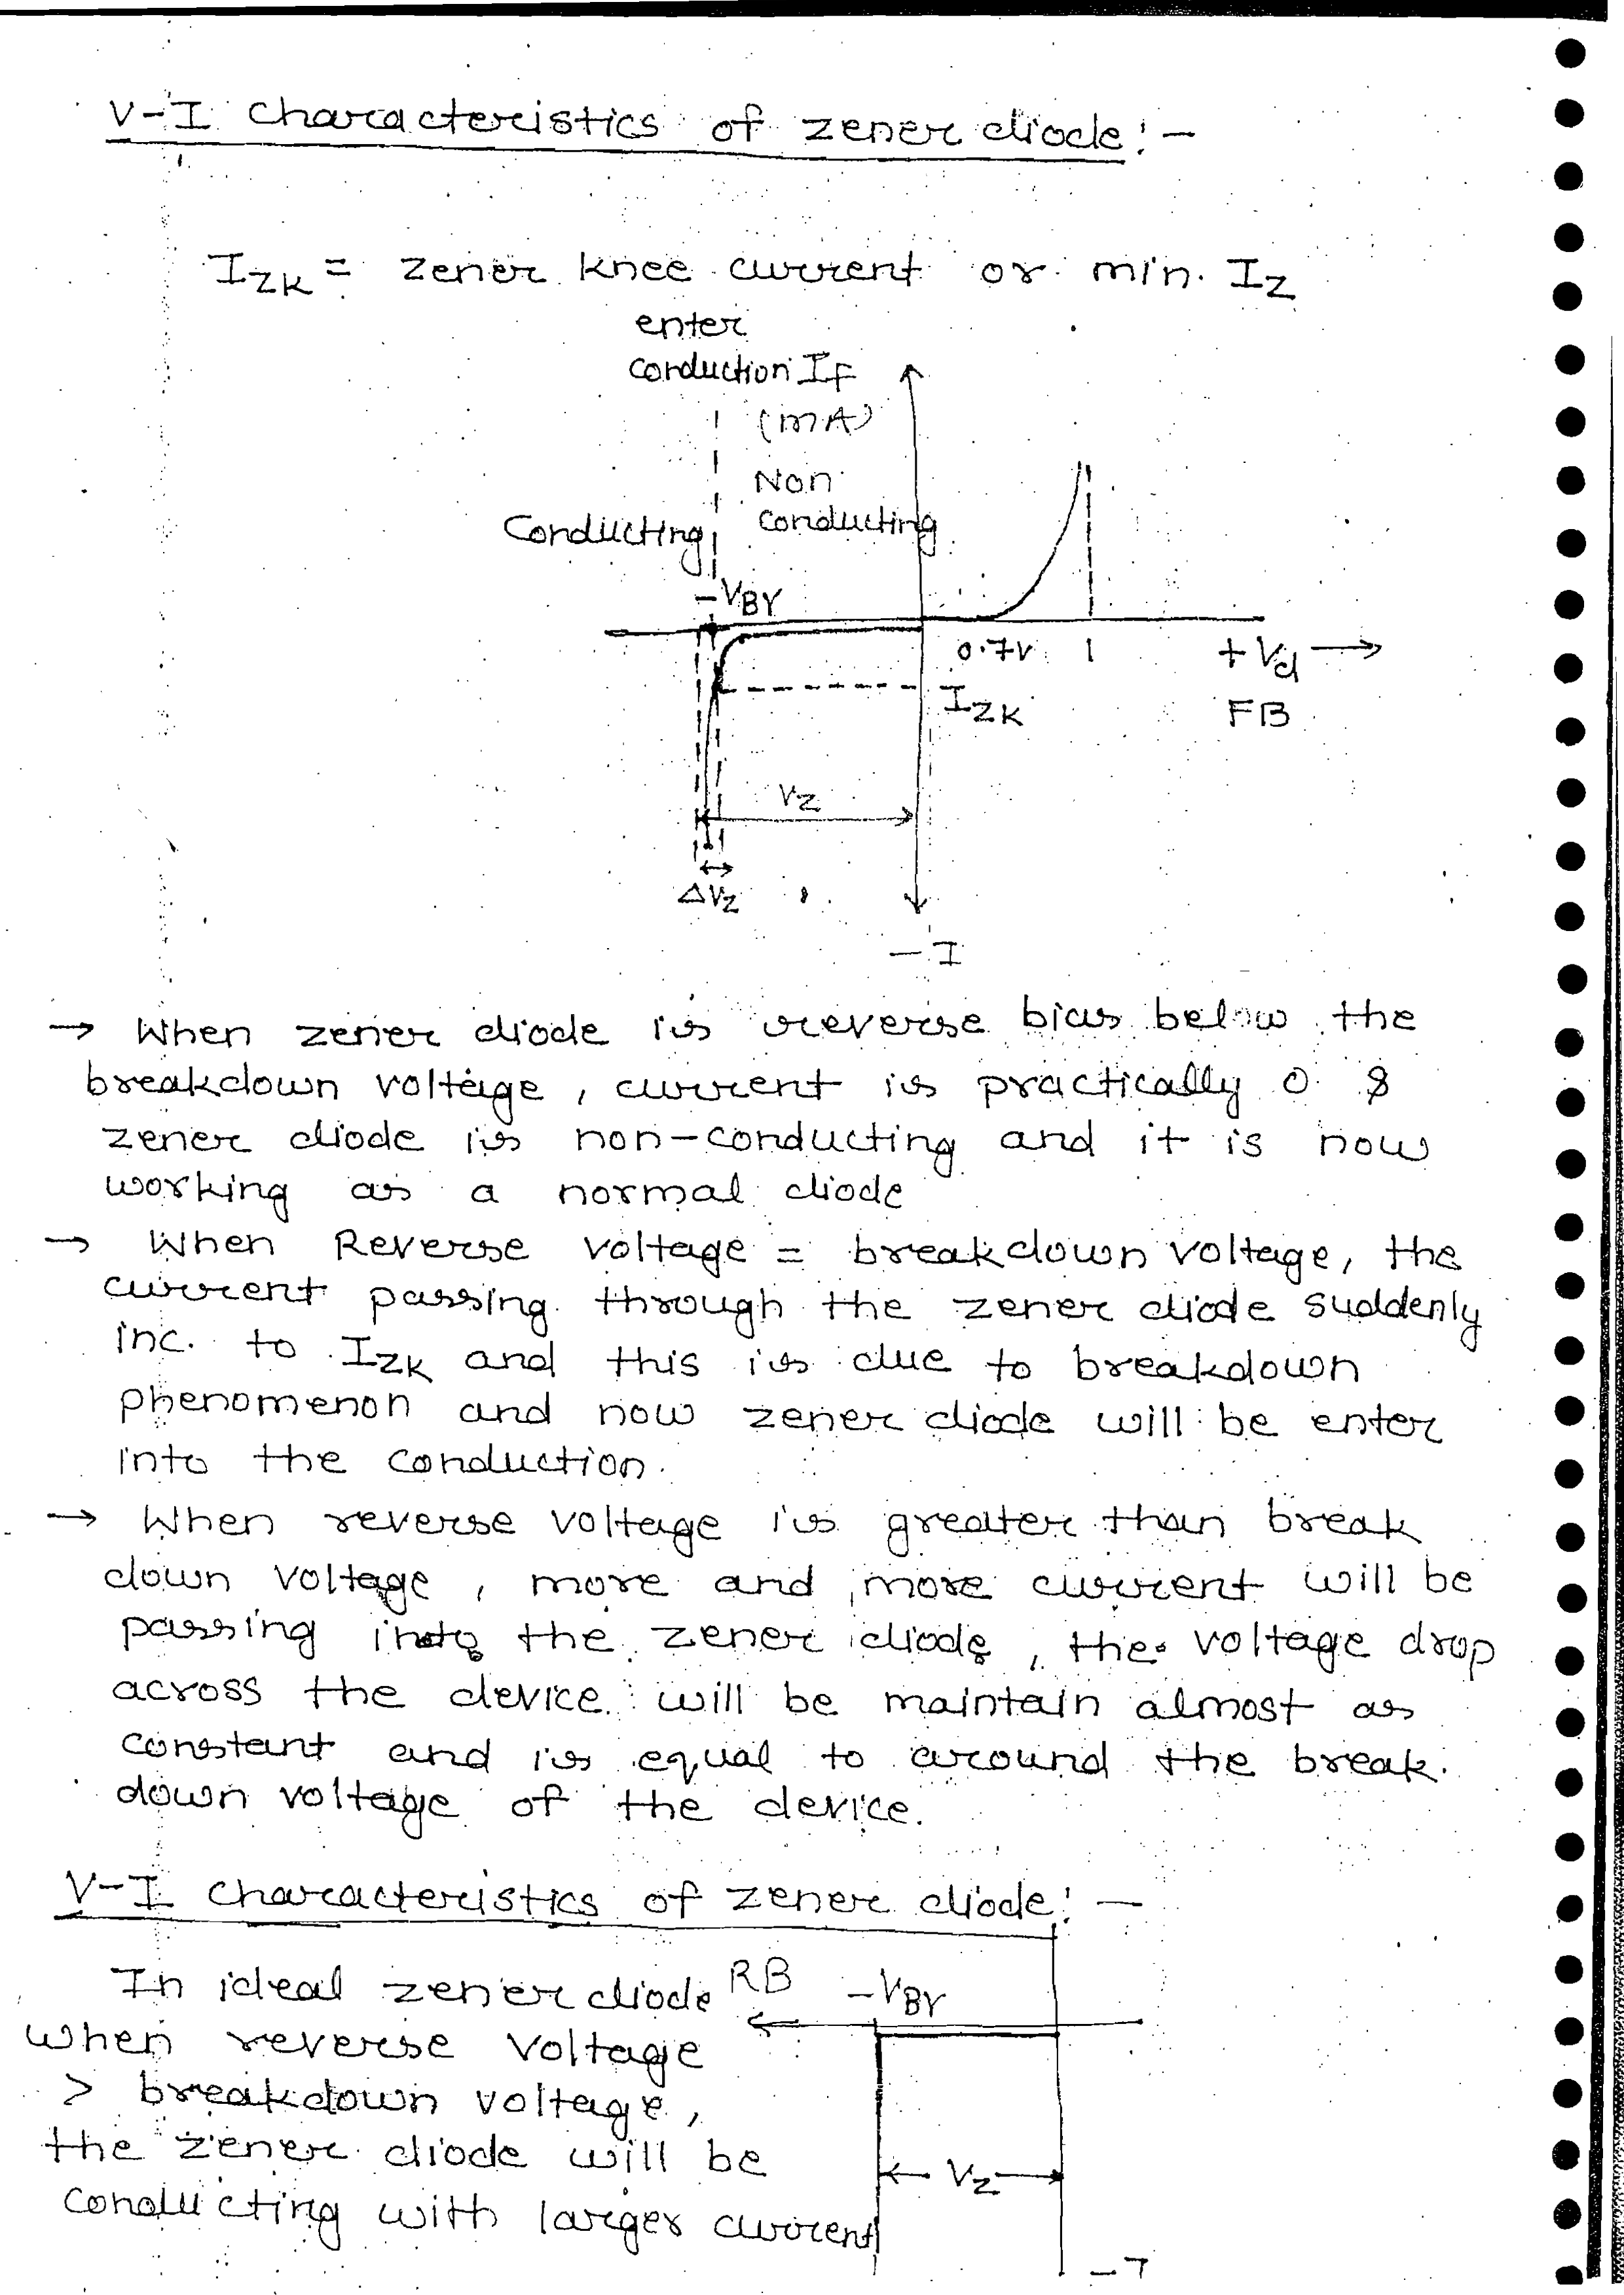 V-I characteristics of zener diode:-
IZK = zener knee current or min. IZ
enter
conduction IF
(mA)
Non
conducting
Conducting
-VBY
0.7V 1 +Vd →
IZK FB
VZ
ΔVZ
-I
→ When zener diode is reverse bias below the
breakdown voltage, current is practically 0 &
zener diode is non-conducting and it is now
working as a normal diode
→ When Reverse voltage = breakdown voltage, the
current passing through the zener diode suddenly
inc. to IZK and this is due to breakdown
phenomenon and now zener diode will be enter
into the conduction.
→ When reverse voltage is greater than break
down voltage, more and more current will be
passing into the zener diode, the voltage drop
across the device will be maintain almost as
constant and is equal to around the break.
down voltage of the device.
V-I characteristics of zener diode:-
In ideal zener diode
when reverse voltage
> breakdown voltage,
the zener diode will be
conducting with larger current
RB -VBY
VZ
-I